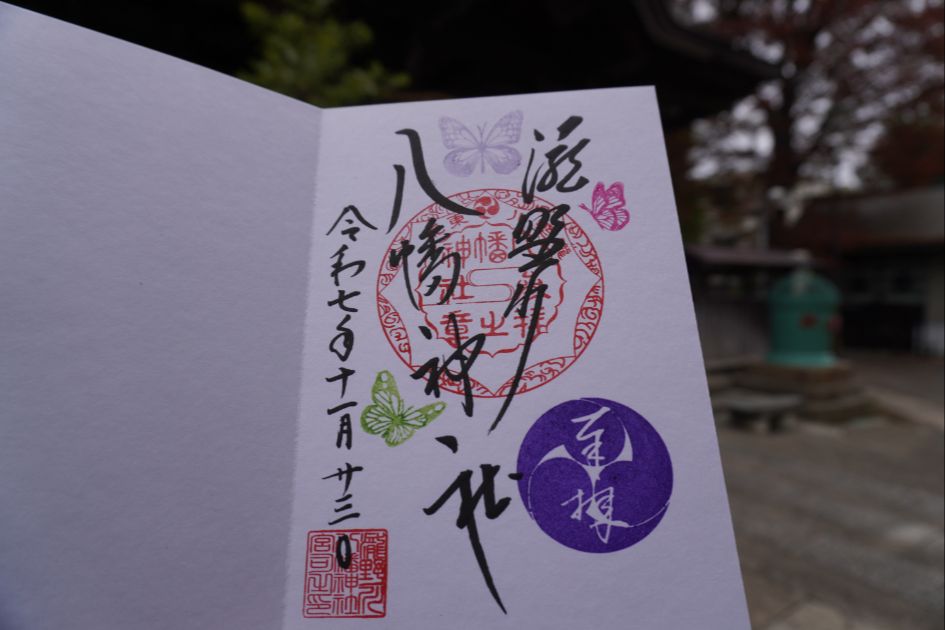 奉拝
瀧野川
八幡神社
令和七年十一月廿三日
瀧野川
八幡神社